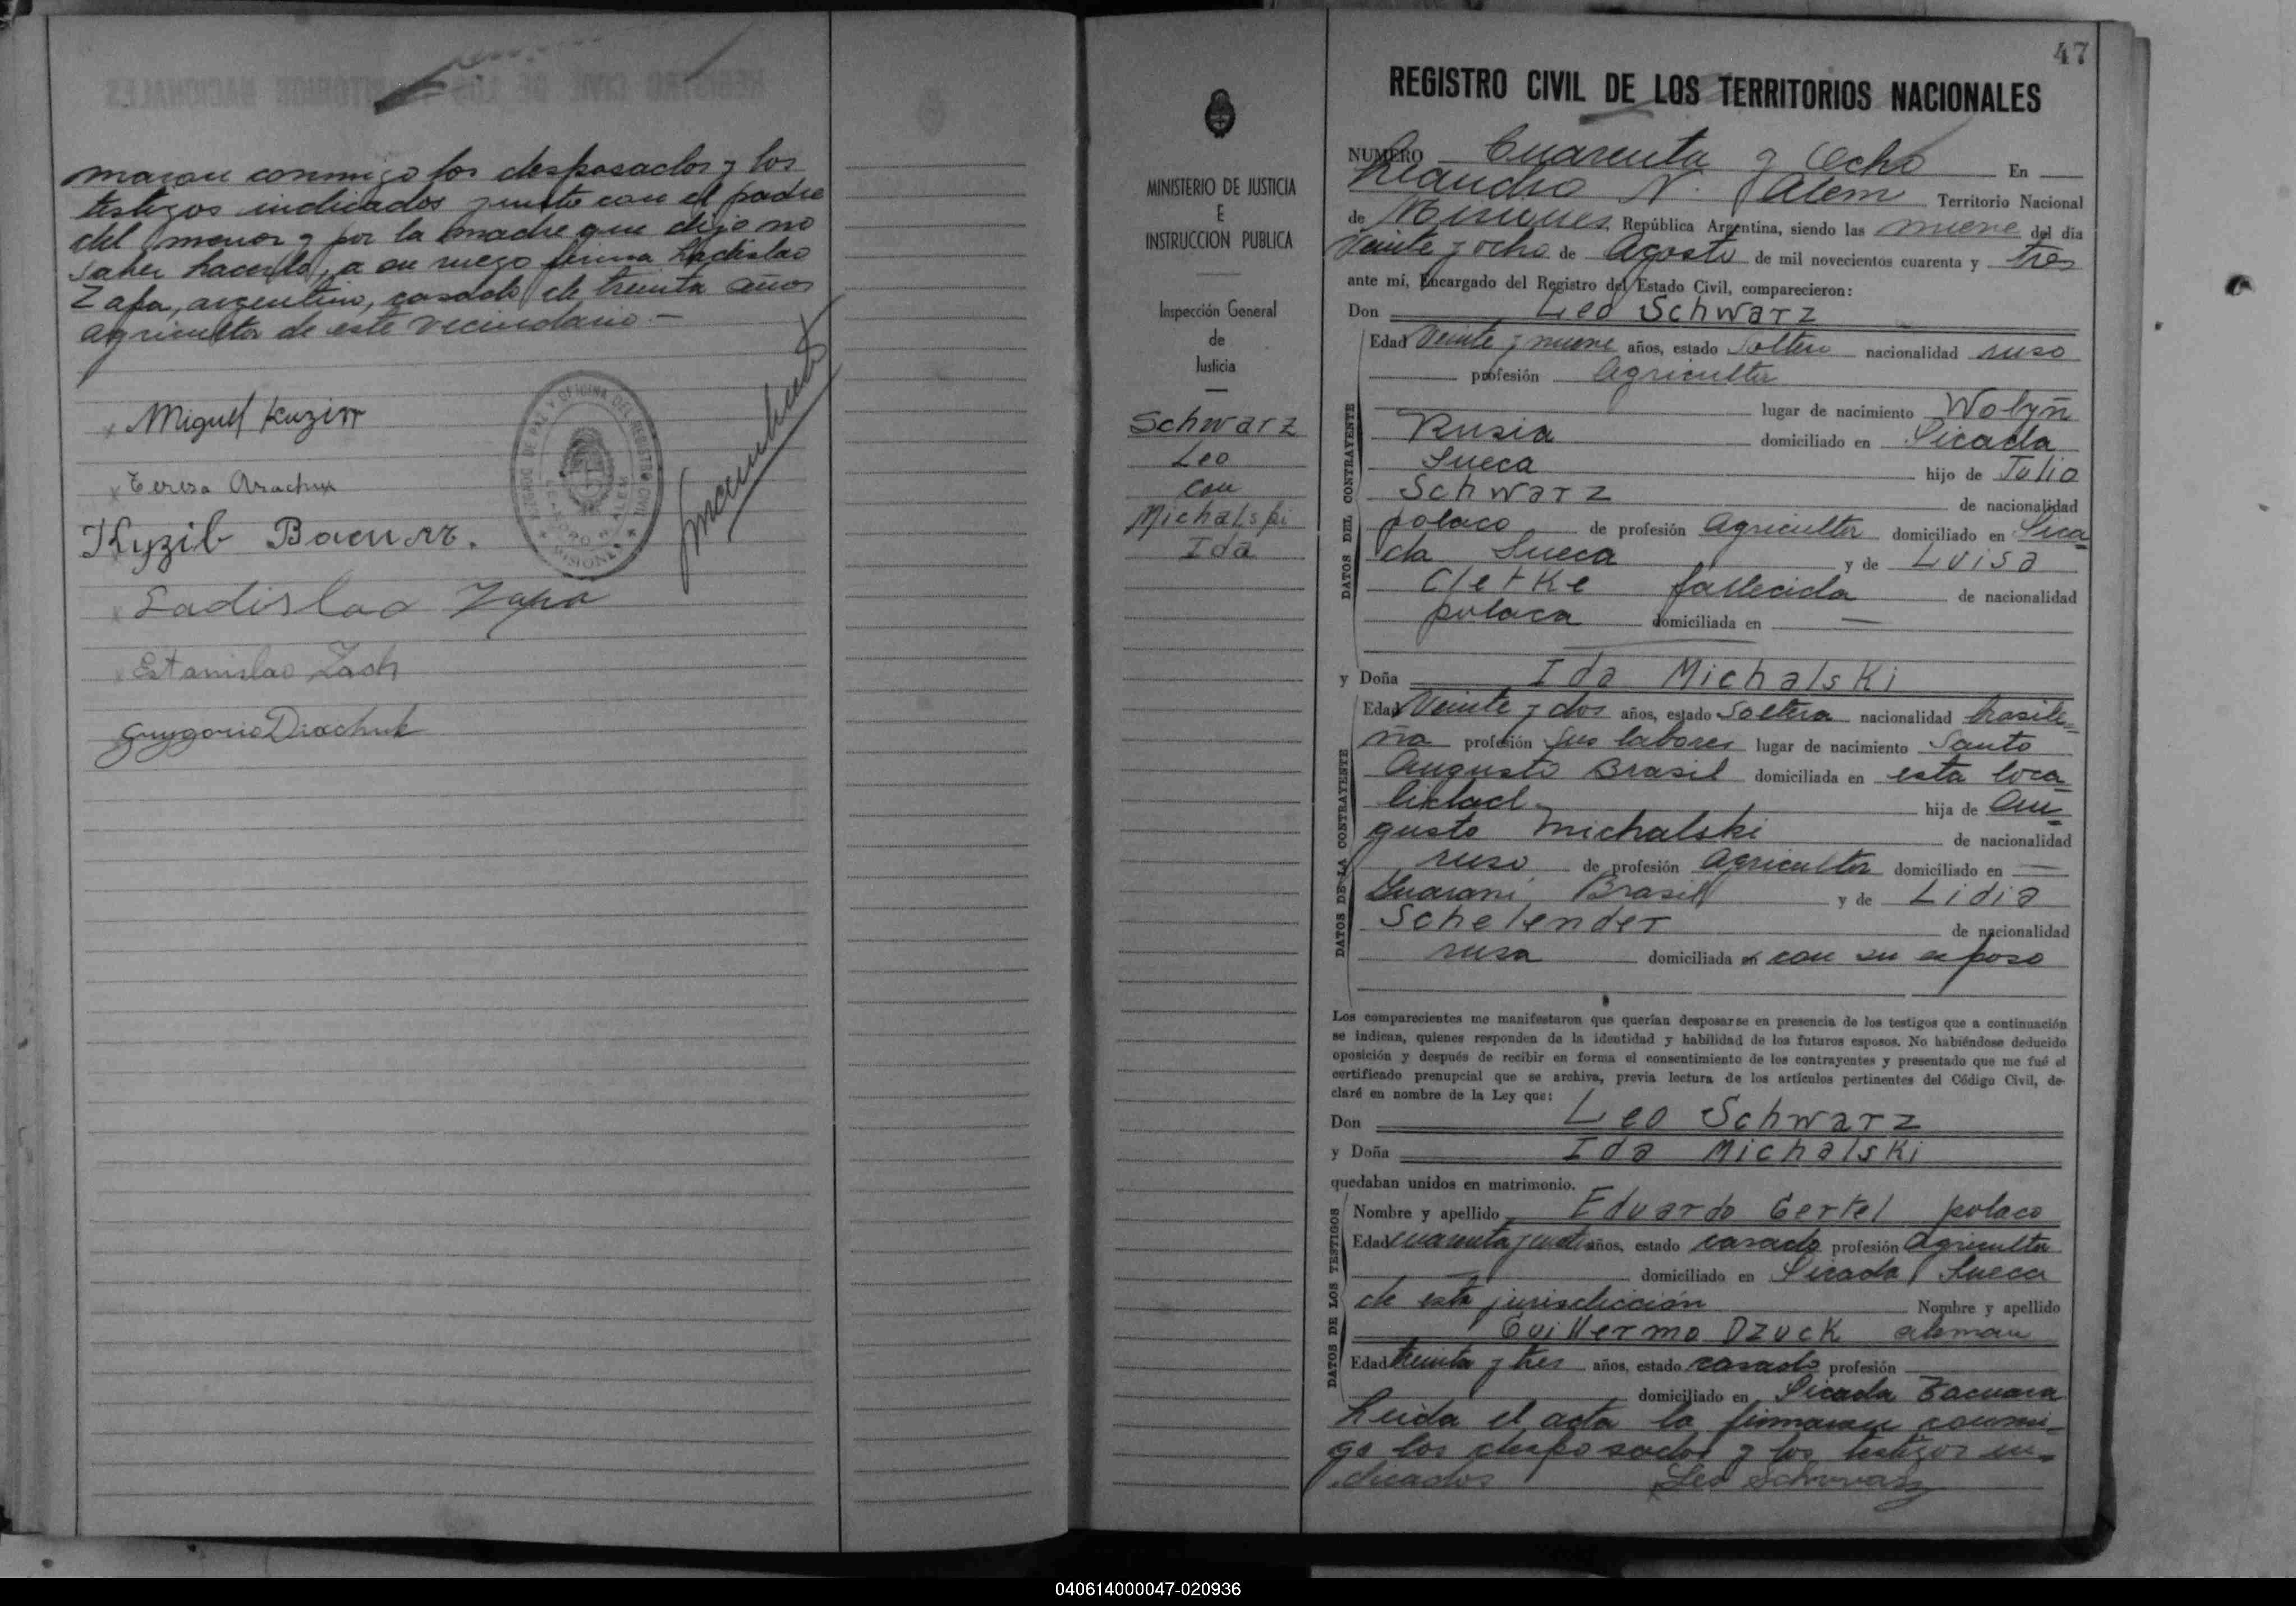 maron conmigo los desposados y los
testigos indicados junto con el padre
del menor y por la madre que dijo no
saber hacerlo, a su ruego firma Ladislao
Zapa, argentino, casado de treinta años
agricultor de este vecindario.-
Miguel Kuzin
Teresa
Ladislao Zapa
Estanislao Zach
Grygorio Diachuk
JUZGADO DE PAZ Y OFICINA DEL REGISTRO CIVIL
LEANDRO N. ALEM
MISIONES
MINISTERIO DE JUSTICIA
E
INSTRUCCION PUBLICA
Inspección General
de
Justicia
Schwarz
Leo
con
Michalski
Ida
47
REGISTRO CIVIL DE LOS TERRITORIOS NACIONALES
NUMERO Cuarenta y Ocho En
Leandro N. Alem Territorio Nacional
de Misiones República Argentina, siendo las nueve del día
Veinte y ocho de Agosto de mil novecientos cuarenta y tres
ante mí, Encargado del Registro del Estado Civil, comparecieron:
Don Leo Schwarz
DATOS DEL CONTRAYENTE
Edad Veinte y nueve años, estado soltero nacionalidad ruso
profesión Agricultor
lugar de nacimiento Wolyñ
Rusia domiciliado en Picada
Sueca hijo de Julio
Schwarz de nacionalidad
polaco de profesión Agricultor domiciliado en Pica=
da Sueca y de Luisa
Cletke fallecida de nacionalidad
polaca domiciliada en —
y Doña Ida Michalski
DATOS DE LA CONTRAYENTE
Edad Veinte y dos años, estado Soltera nacionalidad brasile=
ña profesión sus labores lugar de nacimiento Santo
Augusto Brasil domiciliada en esta loca=
lidad.- hija de Au=
gusto Michalski de nacionalidad
ruso de profesión Agricultor domiciliado en —
Guarani Brasil y de Lidia
Schelender de nacionalidad
rusa domiciliada en con su esposo
Los comparecientes me manifestaron que querían desposarse en presencia de los testigos que a continuación
se indican, quienes responden de la identidad y habilidad de los futuros esposos. No habiéndose deducido
oposición y después de recibir en forma el consentimiento de los contrayentes y presentado que me fué el
certificado prenupcial que se archiva, previa lectura de los artículos pertinentes del Código Civil, de-
claré en nombre de la Ley que:
Don Leo Schwarz
y Doña Ida Michalski
quedaban unidos en matrimonio.
DATOS DE LOS TESTIGOS
Nombre y apellido Eduardo Gertel polaco
Edad cuarenta y años, estado casado profesión Agricultor
domiciliado en Picada Sueca
de esta jurisdicción Nombre y apellido
Guillermo Dzuck aleman
Edad treinta y tres años, estado casado profesión
domiciliado en Picada Tacuara
Leida el acta la firmaron conmi=
go los desposados y los testigos in=
dicados Leo Schwarz
040614000047-020936